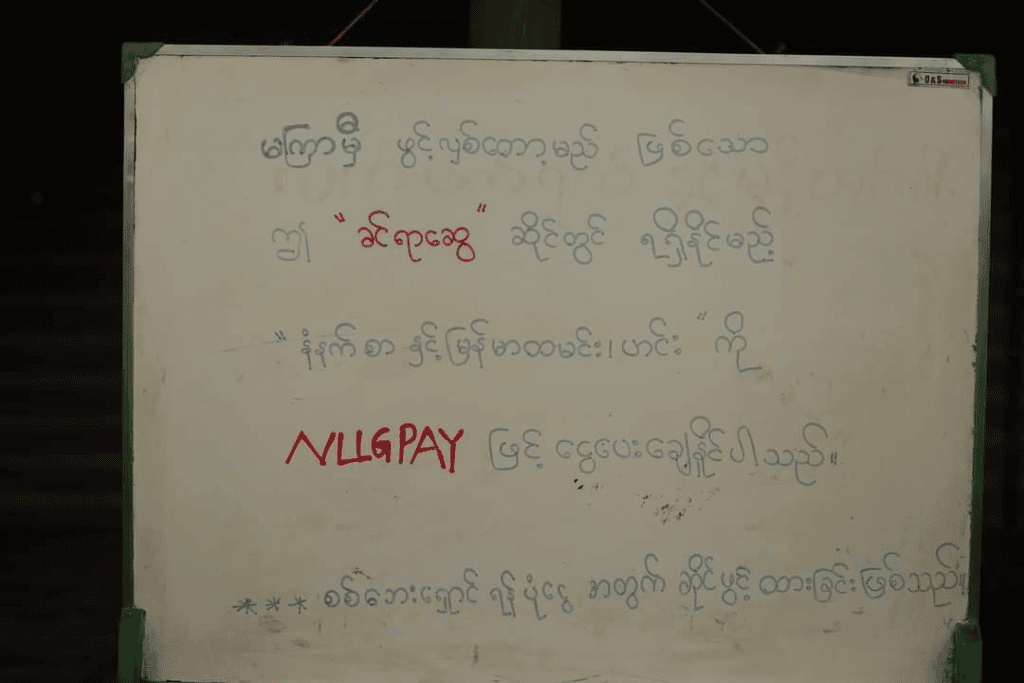 မကြာမှီ ဖွင့်လှစ်တော့မည် ဖြစ်သော
ဤ "ခင်ရာဆွေ" ဆိုင်တွင် ရရှိနိုင်မည့်
"နံနက်စာ နှင့် မြန်မာထမင်း၊ ဟင်း" ကို
NUGPAY ဖြင့် ငွေပေးချေနိုင်ပါသည်။
*** စစ်ဘေးရှောင် ရန်ပုံငွေ အတွက် ဆိုင်ဖွင့်ထားခြင်းဖြစ်သည်။